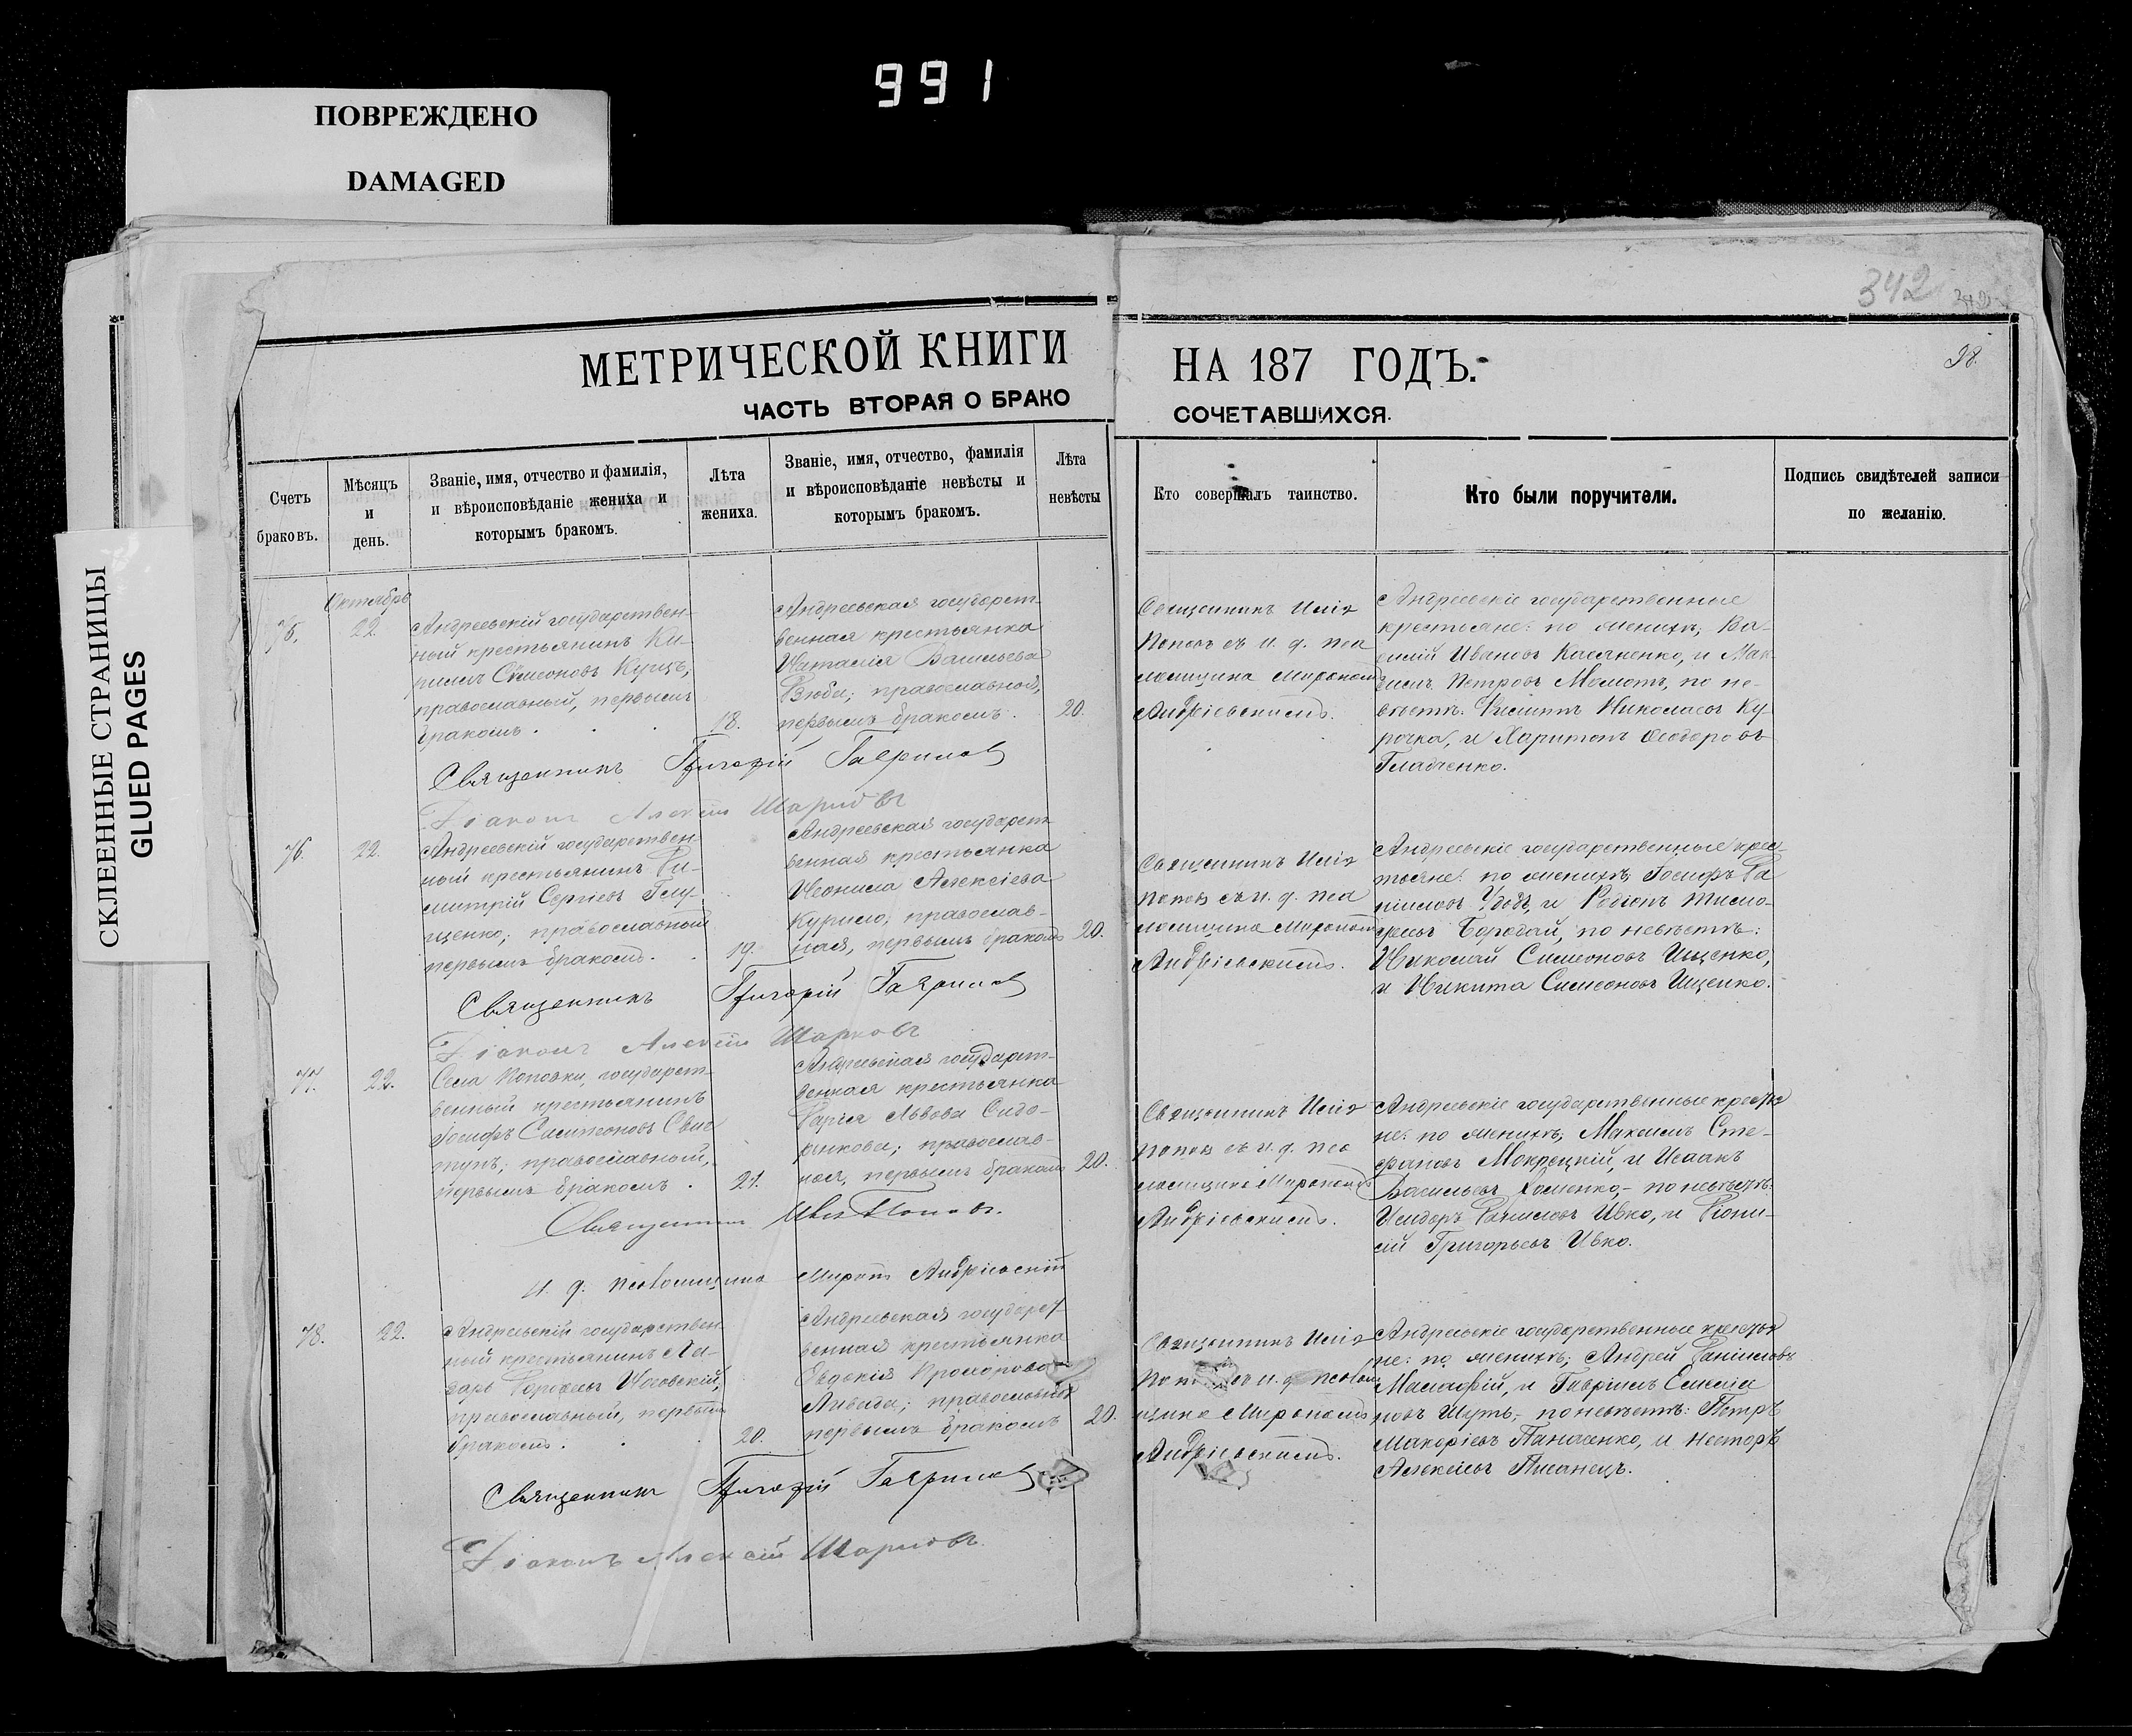 991
ПОВРЕЖДЕНО
DAMAGED
СКЛЕЕННЫЕ СТРАНИЦЫ
GLUED PAGES
342
98.
МЕТРИЧЕСКОЙ КНИГИ
ЧАСТЬ ВТОРАЯ О БРАКО
НА 187 ГОДЪ.
СОЧЕТАВШИХСЯ.
Счетъ браковъ.
Мѣсяцъ и день.
Званіе, имя, отчество и фамилія,
и вѣроисповѣданіе жениха и
которымъ бракомъ.
Лѣта жениха.
Званіе, имя, отчество, фамилія
и вѣроисповѣданіе невѣсты и
которымъ бракомъ.
Лѣта невѣсты
Кто совершалъ таинство.
Кто были поручители.
Подпись свидѣтелей записи
по желанію.
75.
Октябрь
22.
Андреевскій государствен-
ный крестьянинъ Ки-
риллъ Симеоновъ Куцъ,
православный, первымъ
бракомъ.
18.
Андреевская государст-
венная крестьянка
Наталія Васильева
православная,
первымъ бракомъ.
20.
Священникъ Илія
Поповъ съ и. д. пса
ломщика Мирономъ
Андріевскимъ.
Андреевскіе государственные
крестьяне: по женихѣ; Ва-
силій Ивановъ Касяненко, и Мак-
симъ Петровъ Мамотъ, по не-
вѣстѣ: Николаевъ Ку-
рочка, и Харитонъ Ѳеодоровъ
Гладченко.
Священникъ Григорій Гаврилов
Діаконъ Алексій Шарковъ
76.
22.
Андреевскій государствен
ный крестьянинъ Ди-
митрій Сергіевъ Глу-
щенко; православный
первымъ бракомъ.
19.
Андреевская государст-
венная крестьянка
Неонила Алексіева
Курило, православ-
ная, первымъ бракомъ
20.
Священникъ Илія
Поповъ съ и. д. пса
ломщика Мирономъ
Андріевскимъ.
Андреевскіе государственные крес-
тьяне: по женихѣ, Іосифъ Да
ніиловъ Удодъ, и Родіонъ Тимо-
феевъ Бородай, по невѣстѣ:
Николай Симеоновъ Ищенко,
и Никита Симеоновъ Ищенко.
Священникъ Григорій Гаврилов
Діаконъ Алексій Шарковъ
77.
22.
Села Поповки, государст-
венный крестьянинъ
Іосифъ Симеоновъ Сви
тунъ; православный,
первымъ бракомъ.
21.
Андреевская государст-
венная крестьянка
Дарія Львова Сидо-
ренкова; православ-
ная, первымъ бракомъ
20.
Священникъ Илія
Поповъ съ и. д. пса
ломщика Мирономъ
Андріевскимъ.
Андреевскіе государственные крестья
не: по женихѣ, Максимъ Сте-
фановъ Мокрецкій, и Исаакъ
Васильевъ Хоменко,- по невѣстѣ:
Исидоръ Даниловъ Ивко, и Діони-
сій Григорьевъ Ивко.
Священникъ Илія Поповъ.
И. д. псаломщика Миронъ Андріевскій
78.
22.
Андреевскій государствен
ный крестьянинъ Ла-
зарь Нагоский,
православный, первымъ
бракомъ.
20.
Андреевская государст-
венная крестьянка
Евдокія Прохорова
Ливада; православная
первымъ бракомъ
20.
Священникъ Илія
съ и. д. псалом
щика Мирономъ
Андріевскимъ.
Андреевскіе государственные крестья
не: по женихѣ; Андрей Даніиловъ
Маслофій, и Гавріилъ Емелія
новъ Шуть; по невѣстѣ: Петръ
Макаріевъ Панасенко, и Несторъ
Алексіевъ Писанецъ.
Священникъ Григорій Гаврилов
Діаконъ Алексій Шарковъ.